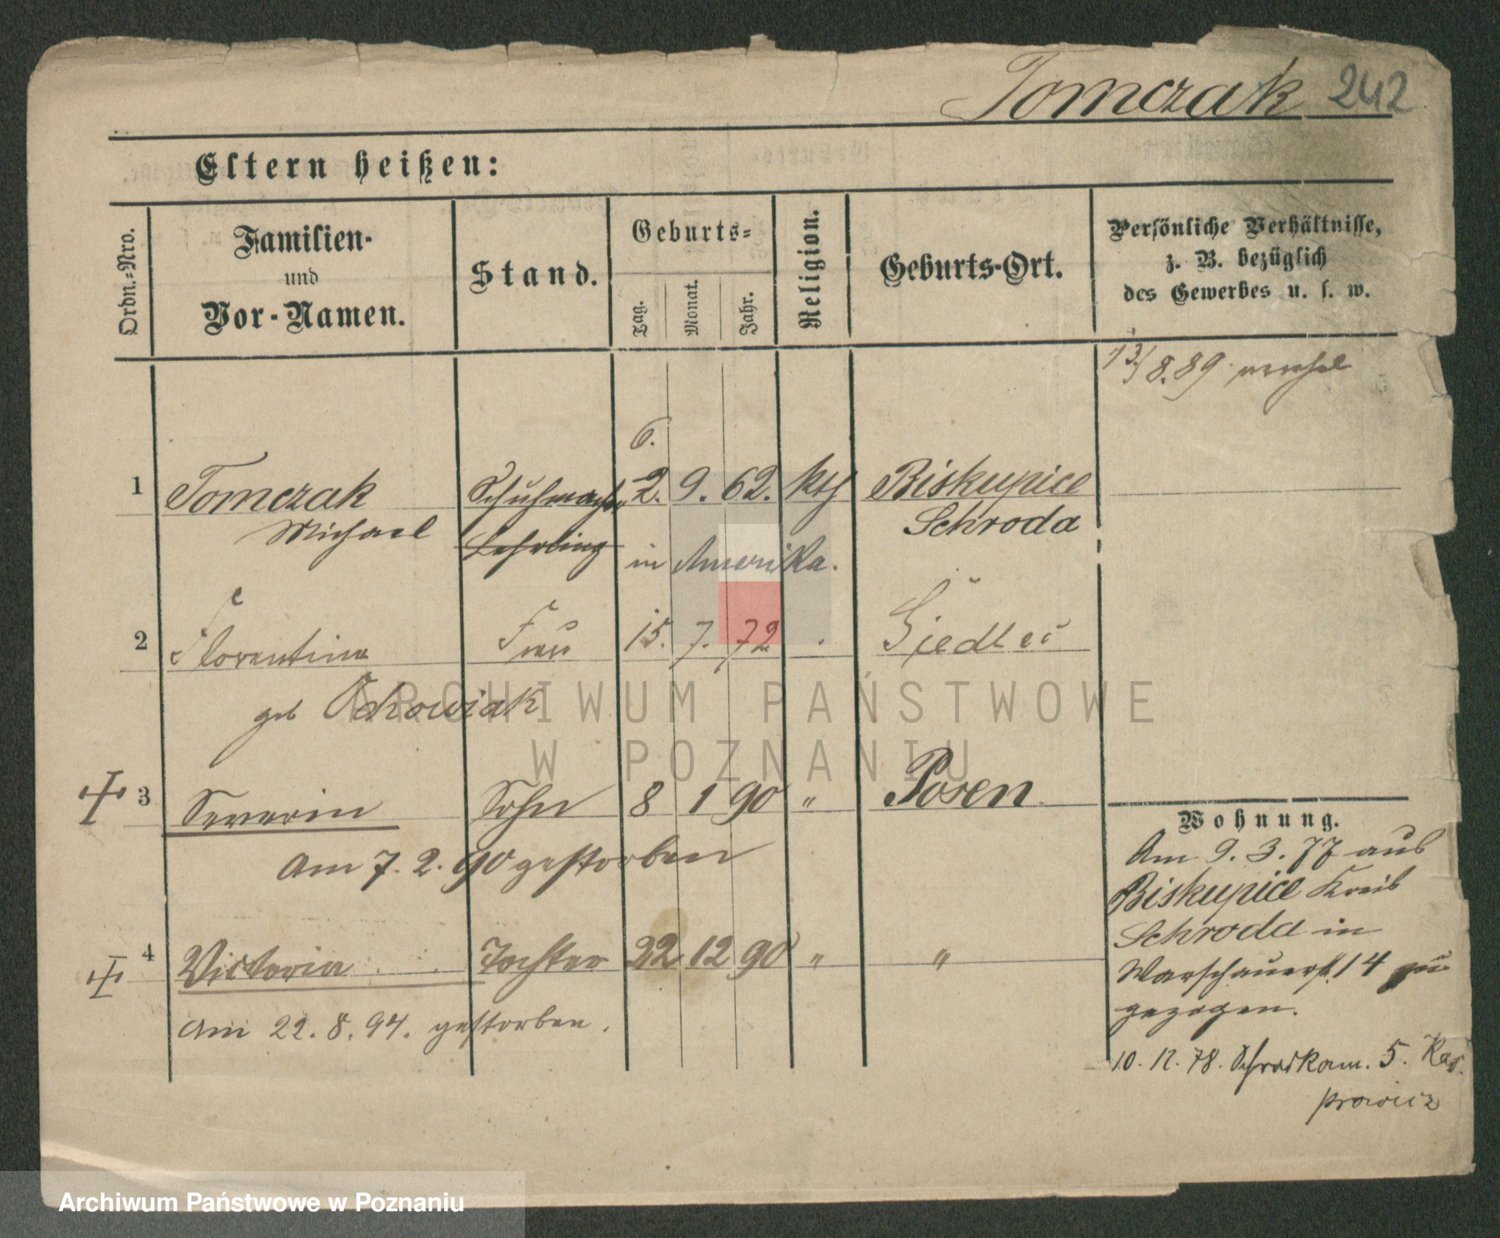 Tomczak 242
Eltern heißen:
Ordn.-Nro.
Familien-
und
Vor-Namen.
Stand.
Geburts-
Tag.
Monat.
Jahr.
Religion.
Geburts-Ort.
Persönliche Verhältnisse,
z. B. bezüglich
des Gewerbes u. s. w.
13/8.89
6.
1 Tomczak Schuhmacher 2. 9. 62. kth Biskupice
Michael Lehrling Schroda
in Amerika.
2 Florentine Frau 15. 7. 72 Siedlec
geb Ochowiak
3 Severin Sohn 8 1 90 " Posen
Am 7. 2. 90 gestorben
4 Victoria Tochter 22 12 90 " "
Am 22. 8. 94. gestorben.
Wohnung.
Am 9. 3. 77 aus
Biskupice Kreis
Schroda in
Warschauerst. 14 zu
gezogen.
10. 12. 78. 5.
ARCHIWUM PAŃSTWOWE
W POZNANIU
Archiwum Państwowe w Poznaniu